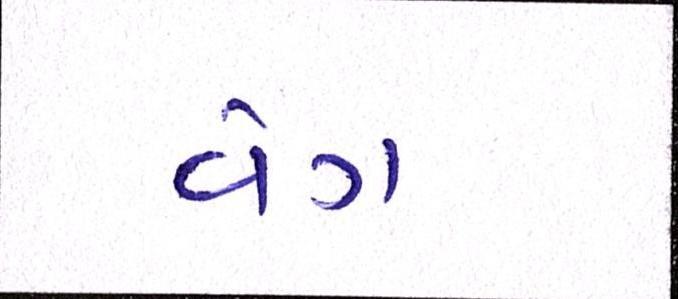 વેગ